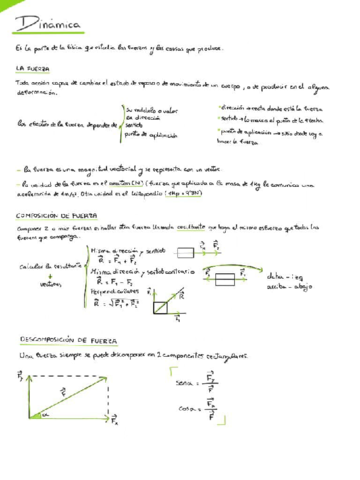 Dinámica
Es la parte de la física que estudia las fuerzas y los efectos que produce.
LA FUERZA
Toda acción capaz de cambiar el estado de reposo o de movimiento de un cuerpo, o de producir en él alguna
deformación.
Los efectos de la fuerza dependen de
Su módulo o valor
su dirección
sentido
punto de aplicación
dirección → recta donde está la fuerza
sentido → lo marca el punto de la flecha
punto de aplicación → sitio donde voy a
hacer la fuerza
- La fuerza es una magnitud vectorial y se representa con un vector.
- La unidad de la fuerza es el newton (N) (fuerza que aplicada a la masa de 1kg le comunica una
aceleración de 1m/s²). Otra unidad es el kilopondio (1kp = 9'8N)
COMPOSICIÓN DE FUERZA
Componer 2 o más fuerzas es hallar otra fuerza llamada resultante que haga el mismo esfuerzo que todas las
fuerzas que componga.
Calcular la resultante
↓
vectores
Misma dirección y sentido
R = F₁ + F₂
Misma dirección y sentido contrario
R = F₁ - F₂
Perpendiculares
R = √F₁² + F₂²
F₁
R
F₁
dcha - izq
arriba - abajo
DESCOMPOSICIÓN DE FUERZA
Una fuerza siempre se puede descomponer en 2 componentes rectangulares.
Fy
F
α
Fx
senα = Fy / F
cosα = Fx / F